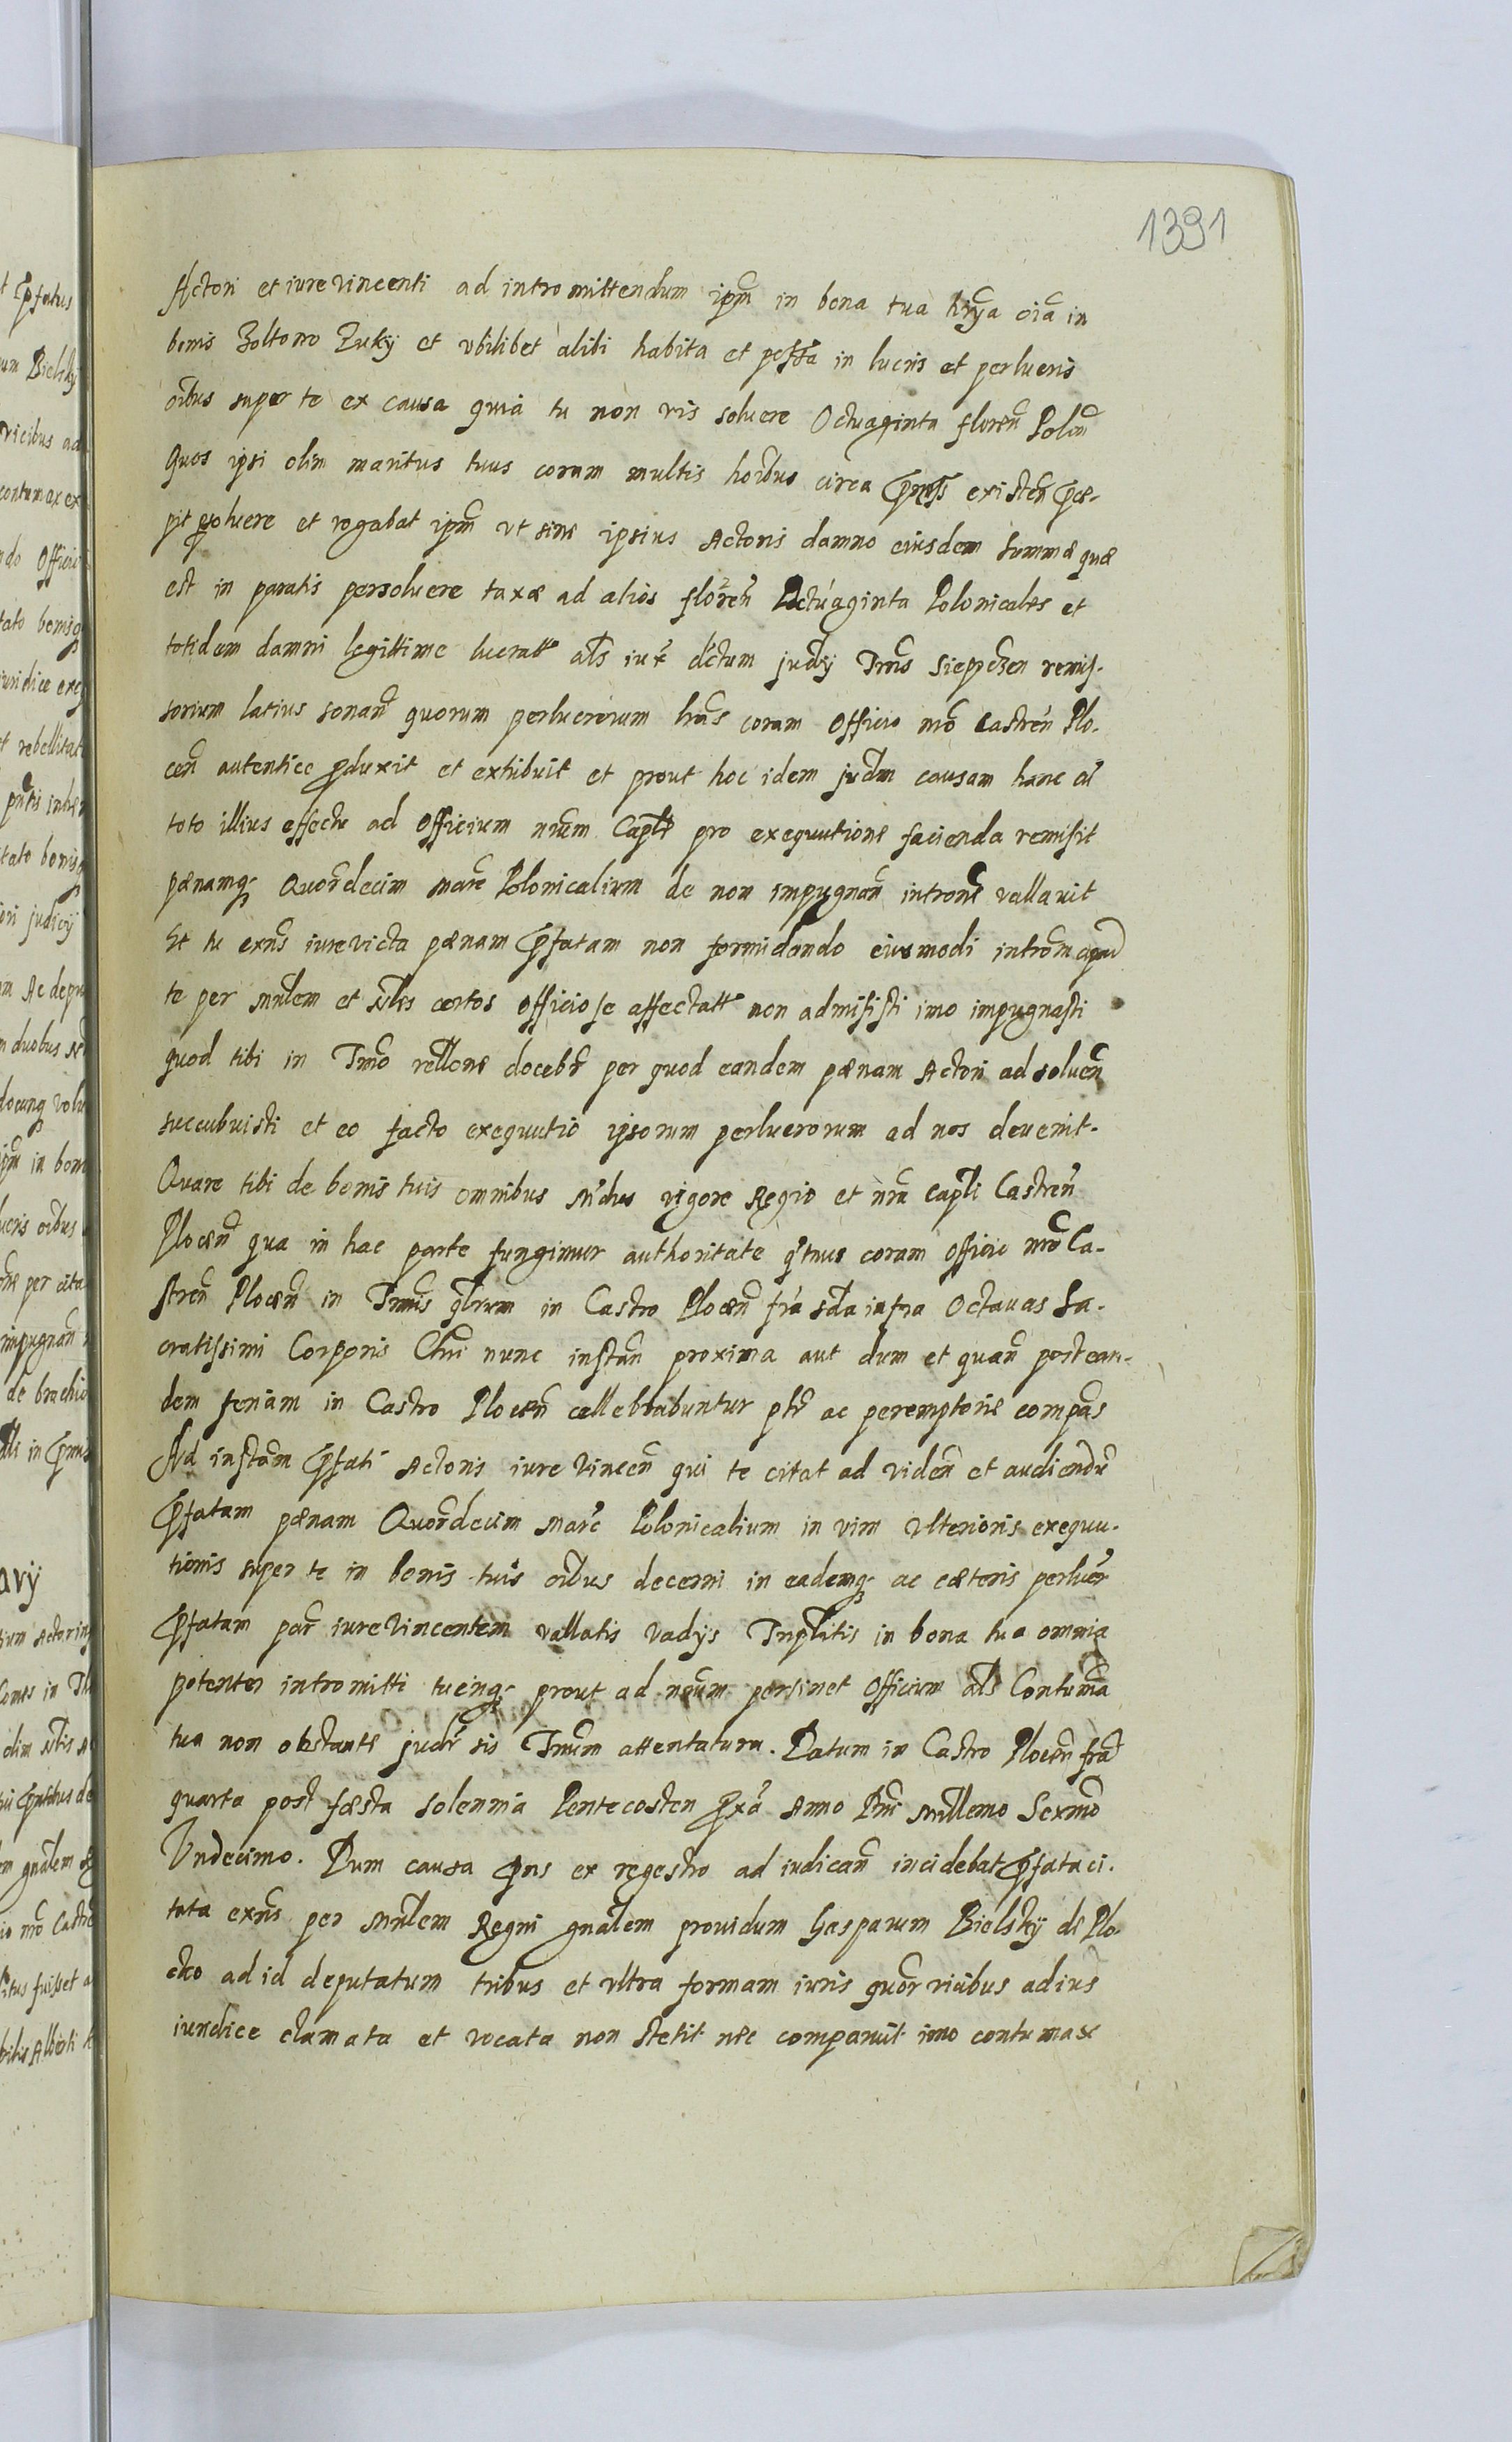 1391
Actori et iurevincenti ad intromittendum ipm̃ in bona tua hrỹa oĩa in
bonis Zoltowo Zuky et vbilibet alibi habita et possa in lucris et perlucris
oĩbus super te ex causa quia tu non vis soluere Octuaginta floreñ Poloñ
Quos ipsi olim maritus tuus coram multis hoĩbus circa p̃ns existeñ p̃ce-
pit psoluere et rogabat ipm̃ vt sine ipsius Actoris damno eiusdem Summæ quæ
est in paratis persoluere taxæ ad alios floreñ Octuaginta Polonicales et
totidem damni legittime lucratt als iux̃ dc̃tum judỹ Trm̃s Sieppczen remis-
sorium latius sonañ quorum perlucrorum lrãs coram Officio nrõ Castreñ Plo-
ceñ autentice pduxit et exhibuit et prout hoc idem judm̃ causam hanc cũ
toto illius effectu ad Officium nrũm Caplẽ pro exequutione facienda remisit
pænamq; Quordecim Marc Polonicalium de non impugnañ introñe vallauit
Et tu exñs iurevicta pænam p̃fatam non formidando eiusmodi introm̃ apud
te per Mnlem et Nles certos officiose affectatt non admisisti imo impugnasti
quod tibi in Trm̃o rellone docebr̃ per quod eandem pænam Actori ad solueñ
succubuisti et eo facto exequutio ipsorum perlucrorum ad nos deuenit.
Quare tibi de bonis tuis omnibus M̃dus vigore Regio et nrã Capli Castreñ
Ploceñ qua in hac parte fungimur authoritate q̃tnus coram Officio nrõ Ca-
streñ Ploceñ in Trm̃is qlrium in Castro Ploceñ frã sda infra Octauas Sa-
cratissimi Corporis Chrĩ nunc instañ proxima aut dum et quañ post ean-
dem feriam in Castro Ploceñ cellebrabuntur pltr̃ ac peremptorie compãs
Ad instam̃ p̃fati Actoris iure vinceñ qui te citat ad videñ et audiendũ
p̃fatam pænam Quordecim Marc Polonicalium in vim vlterioris exequu-
tionis super te in bonis tuis oĩbus decerni in eademq; ac cæteris perlucr̃
p̃fatam par̃ iurevincentem vallatis vadys Triplitis in bona tua omnia
potenter intromitti tueriq; prout ad nrũm pertinet Officium als Contum̃a
tua non obstante judr̃ sis Trm̃um attentatura. Datum in Castro Ploceñ frã
quarta post fæsta solennia Pentecosten p̃xã Anno Dñi Millemo Sexmõ
Vndecimo. Dum causa p̃ns ex regestro ad iudicañ incidebat p̃fata ci-
tata exñs per Mnlem Regni gnalem prouidum Gasparum Bielsky de Plo-
cko ad id deputatum tribus et vltra formam iuris quor vicibus ad ius
iuridice clamata et vocata non stetit nec comparuit imo contumax